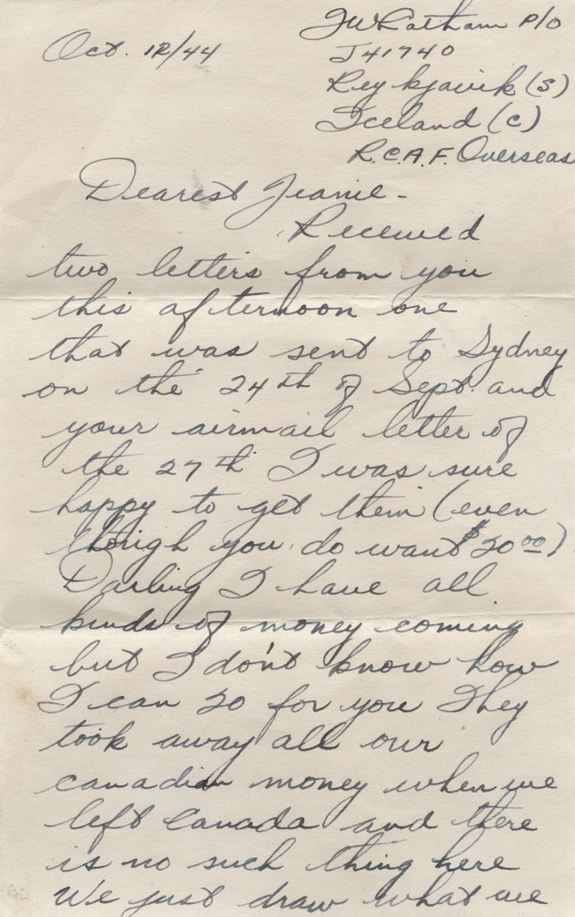 Oct. 12/44
JW Latham P/O
J41740
Reykjavik (S)
Iceland (C)
R.C.A.F. Overseas
Dearest Jeanie -
Received
two letters from you
this afternoon one
that was sent to Sydney
on the 24th of Sept. and
your airmail letter of
the 27th I was sure
happy to get them (even
though you do want $20.00)
Darling I have all
kinds of money coming
but I don't know how
I can 20 for you They
took away all our
canadian money when we
left Canada and there
is no such thing here
We just draw what we